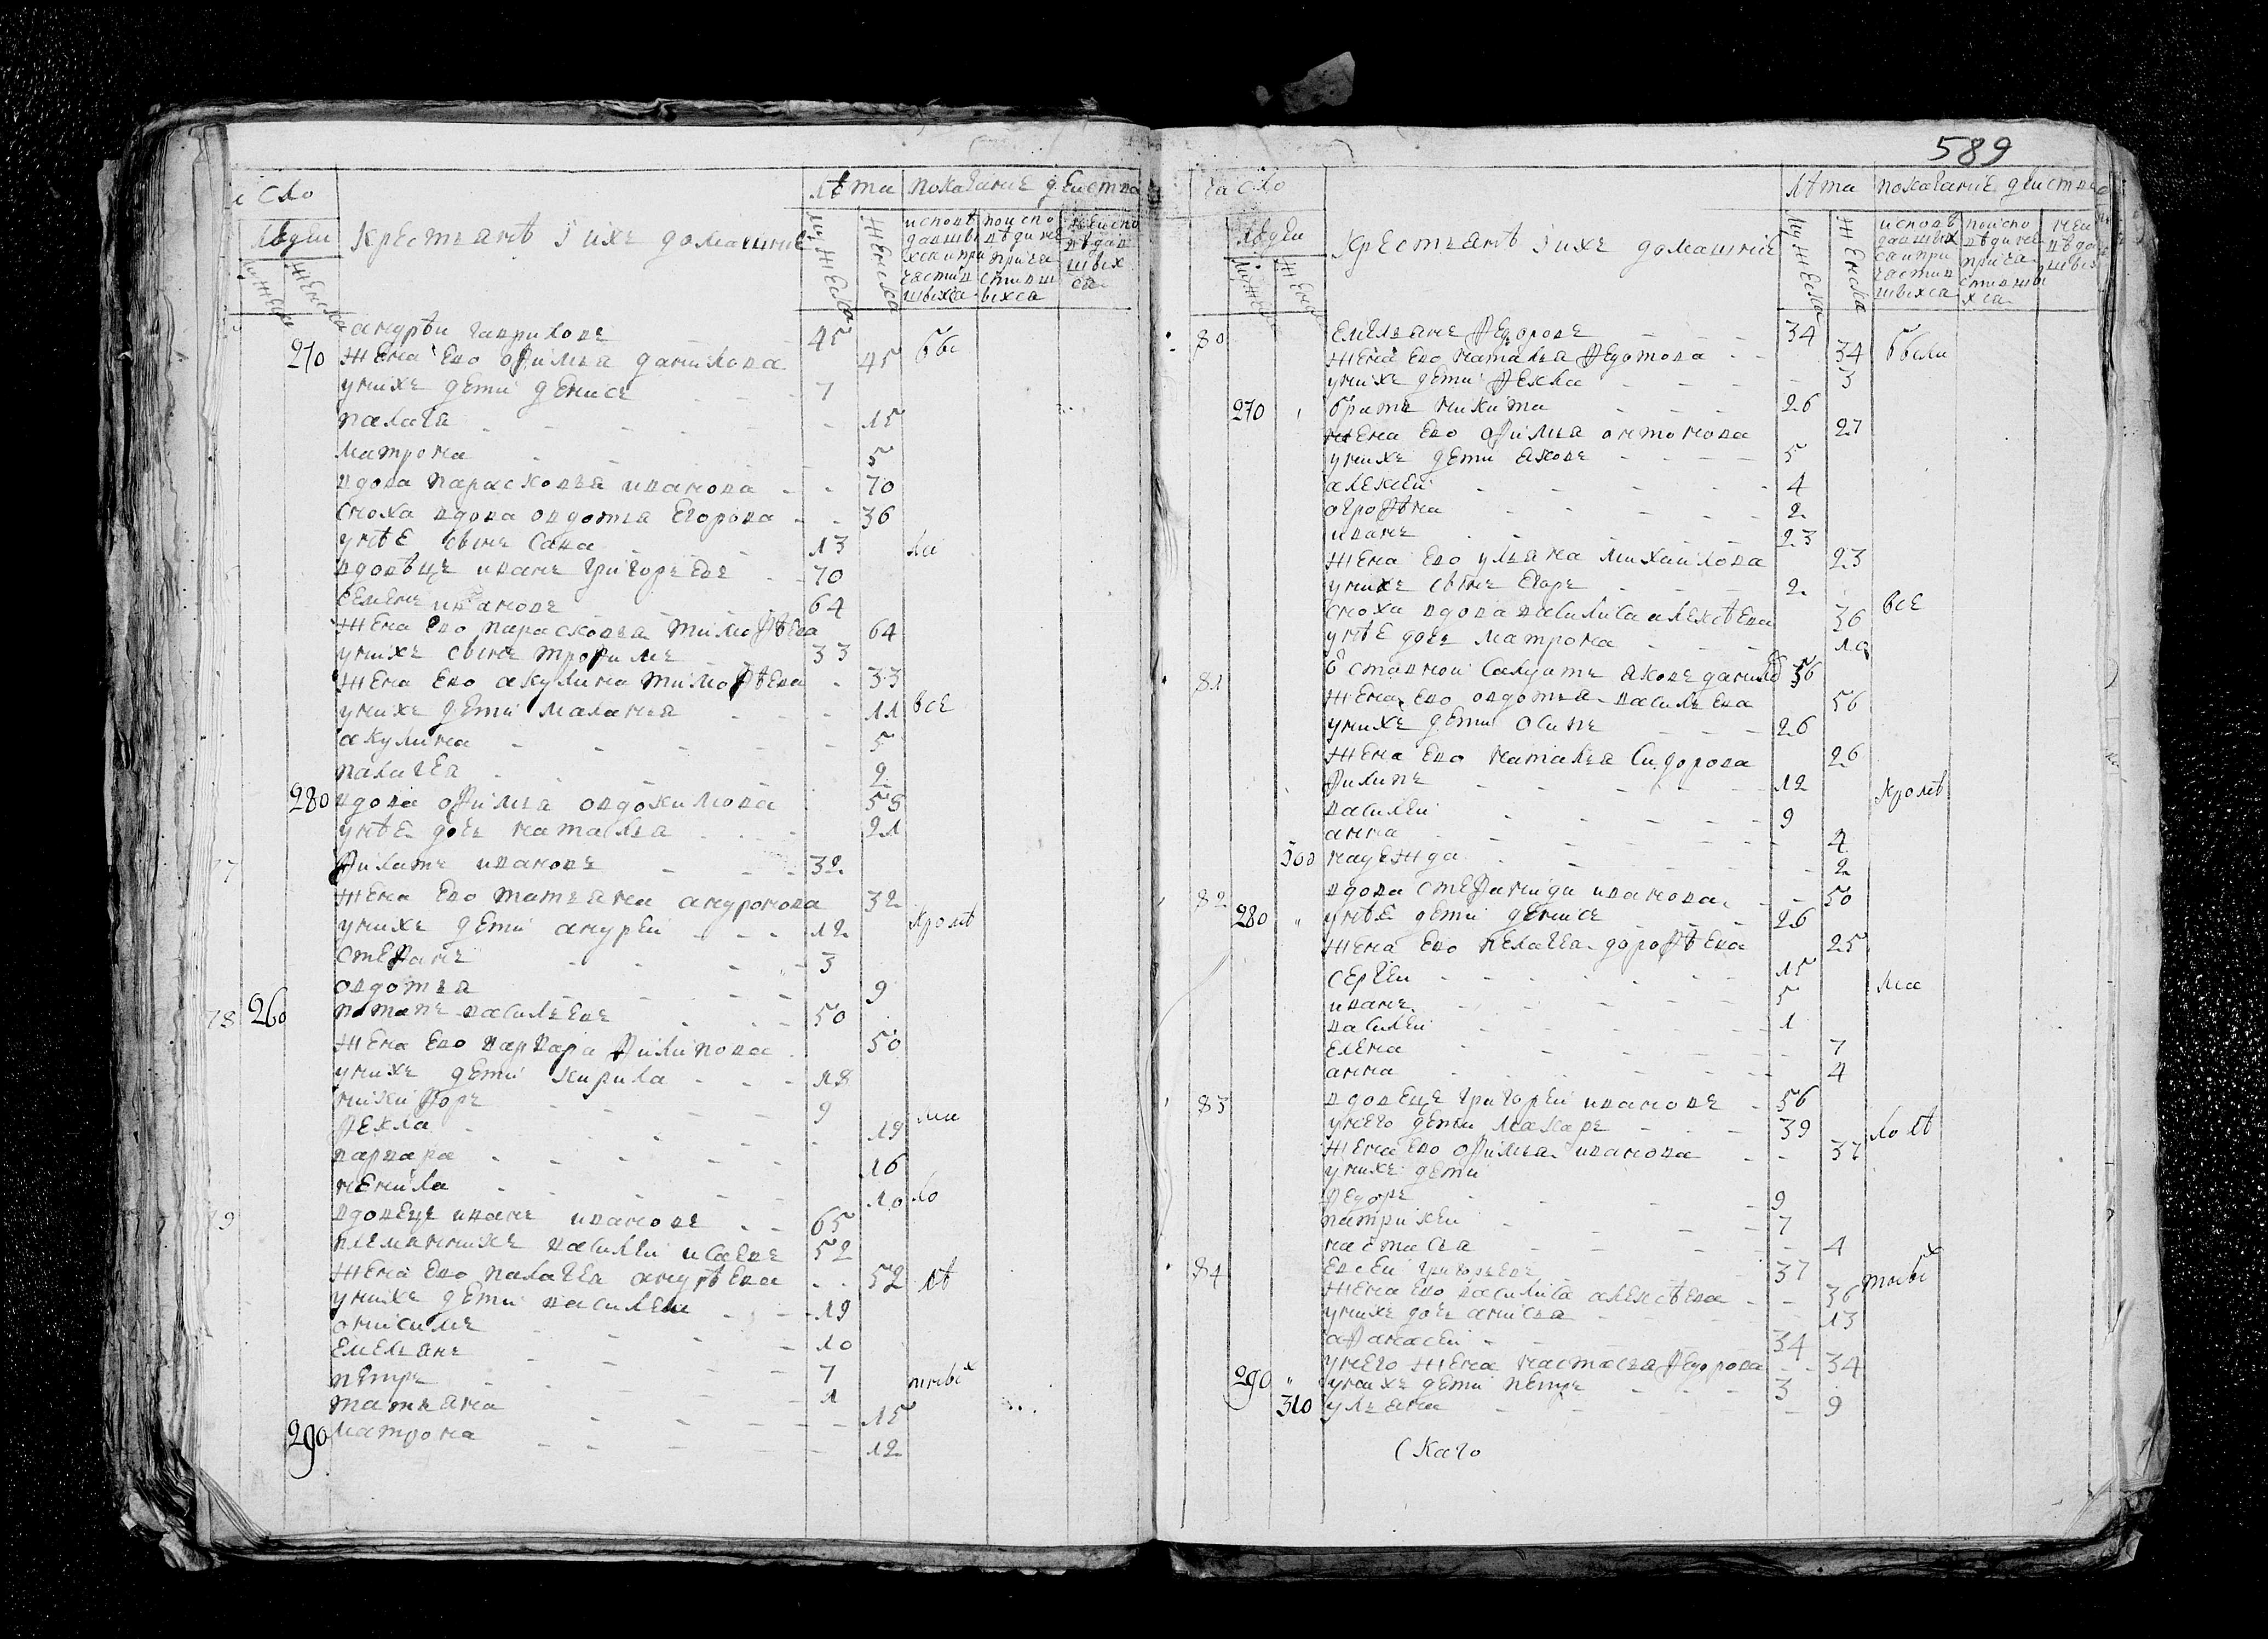 исло
людеи
мужеска
женска
крестьянѣ i ихъ домашние
лѣта
мужеска
женска
показание деиства
исповѣдавшихся и причастившихся
по исповѣди не причастившихся
не исповѣдавшихся
андрѣи гавриловъ 45 бы
270 жена ево офимья данилова 45
у нихъ дети денисъ 7
палагѣя 15
матрона 5
вдова парасковья иванова 70
сноха вдова овдотья егорова 36
у нѣе сынъ сава 13 ли
вдовѣцъ иванъ григорьевъ 70
семенъ ивановъ 64
жена ево парасковья тимофѣева 64
у нихъ сынъ трофимъ 33
жена ево акулина тимофѣева 33
у нихъ дети маланья 11 все
акулина 5
палагея 2
280 вдова офимья овдокимова 58
у нѣе дочь наталья 21
77 филатъ ивановъ 32
жена ево татьяна андронова 32
у нихъ дети андреи 12 кромѣ
стефанъ 3
овдотья 9
78 260 потапъ васильевъ 50
жена ево варвара филипова 50
у нихъ дети кирила 18
никифоръ 9
фекла 19 ма
варвара 16
ненила 10 ло
79 вдовецъ иванъ ивановъ 65
племянникъ васили исаевъ 52
жена ево палагея андрѣева 52 лѣ
у нихъ дети василеи 19
онисимъ 10
емельянъ 7
петръ 1
татьяна 15 тныхъ
290 матрона 12

589
число
людеи
мужеска
женска
крестьянѣ i ихъ домашние
лѣта
мужеска
женска
показание деиства
исповѣдавшихся и причастившихся
по исповѣди не причастившихся
не исповѣдавшихся
80 емельянъ федоровъ 34
жена ево наталья федотова 34 были
у нихъ дети фекла 3
270 братъ никита 26
жена ево офимья онтонова 27
у нихъ дети яковъ 5
алексеи 4
ерофѣна 2
иванъ 23
жена ево ульяна михаилова 23
у нихъ сынъ егоръ 2
сноха вдова василиса алексѣева 36 все
у нѣе дочь матрона 10
81 отставнои салдатъ яковъ данилов 56
жена ево овдотья васильева 56
у нихъ дети осипъ 26
жена ево наталья сидорова 26
филипъ 12 кромѣ
василеи 9
анна 4
300 надежда 2
82 вдова стефанида иванова 50
280 у нѣе дети денисъ 26
жена ево пелагея дорофѣева 25
сергеи 15 ма
иванъ 5
василеи 1
елена 7
анна 4
83 вдовецъ григореи ивановъ 56
у него дети макаръ 39 ло лѣ
жена ево офимья иванова 37
у нихъ дети
федоръ 9
патрикеи 7
настасья 4
84 евсеи григорьевъ 37
жена ево василиса алексѣева 36 тныхъ
у нихъ дочь анисья 13
афанасеи 34
у него жена настасья федорова 34
290 у нихъ дети петръ 3
310 ульяна 9
скаго